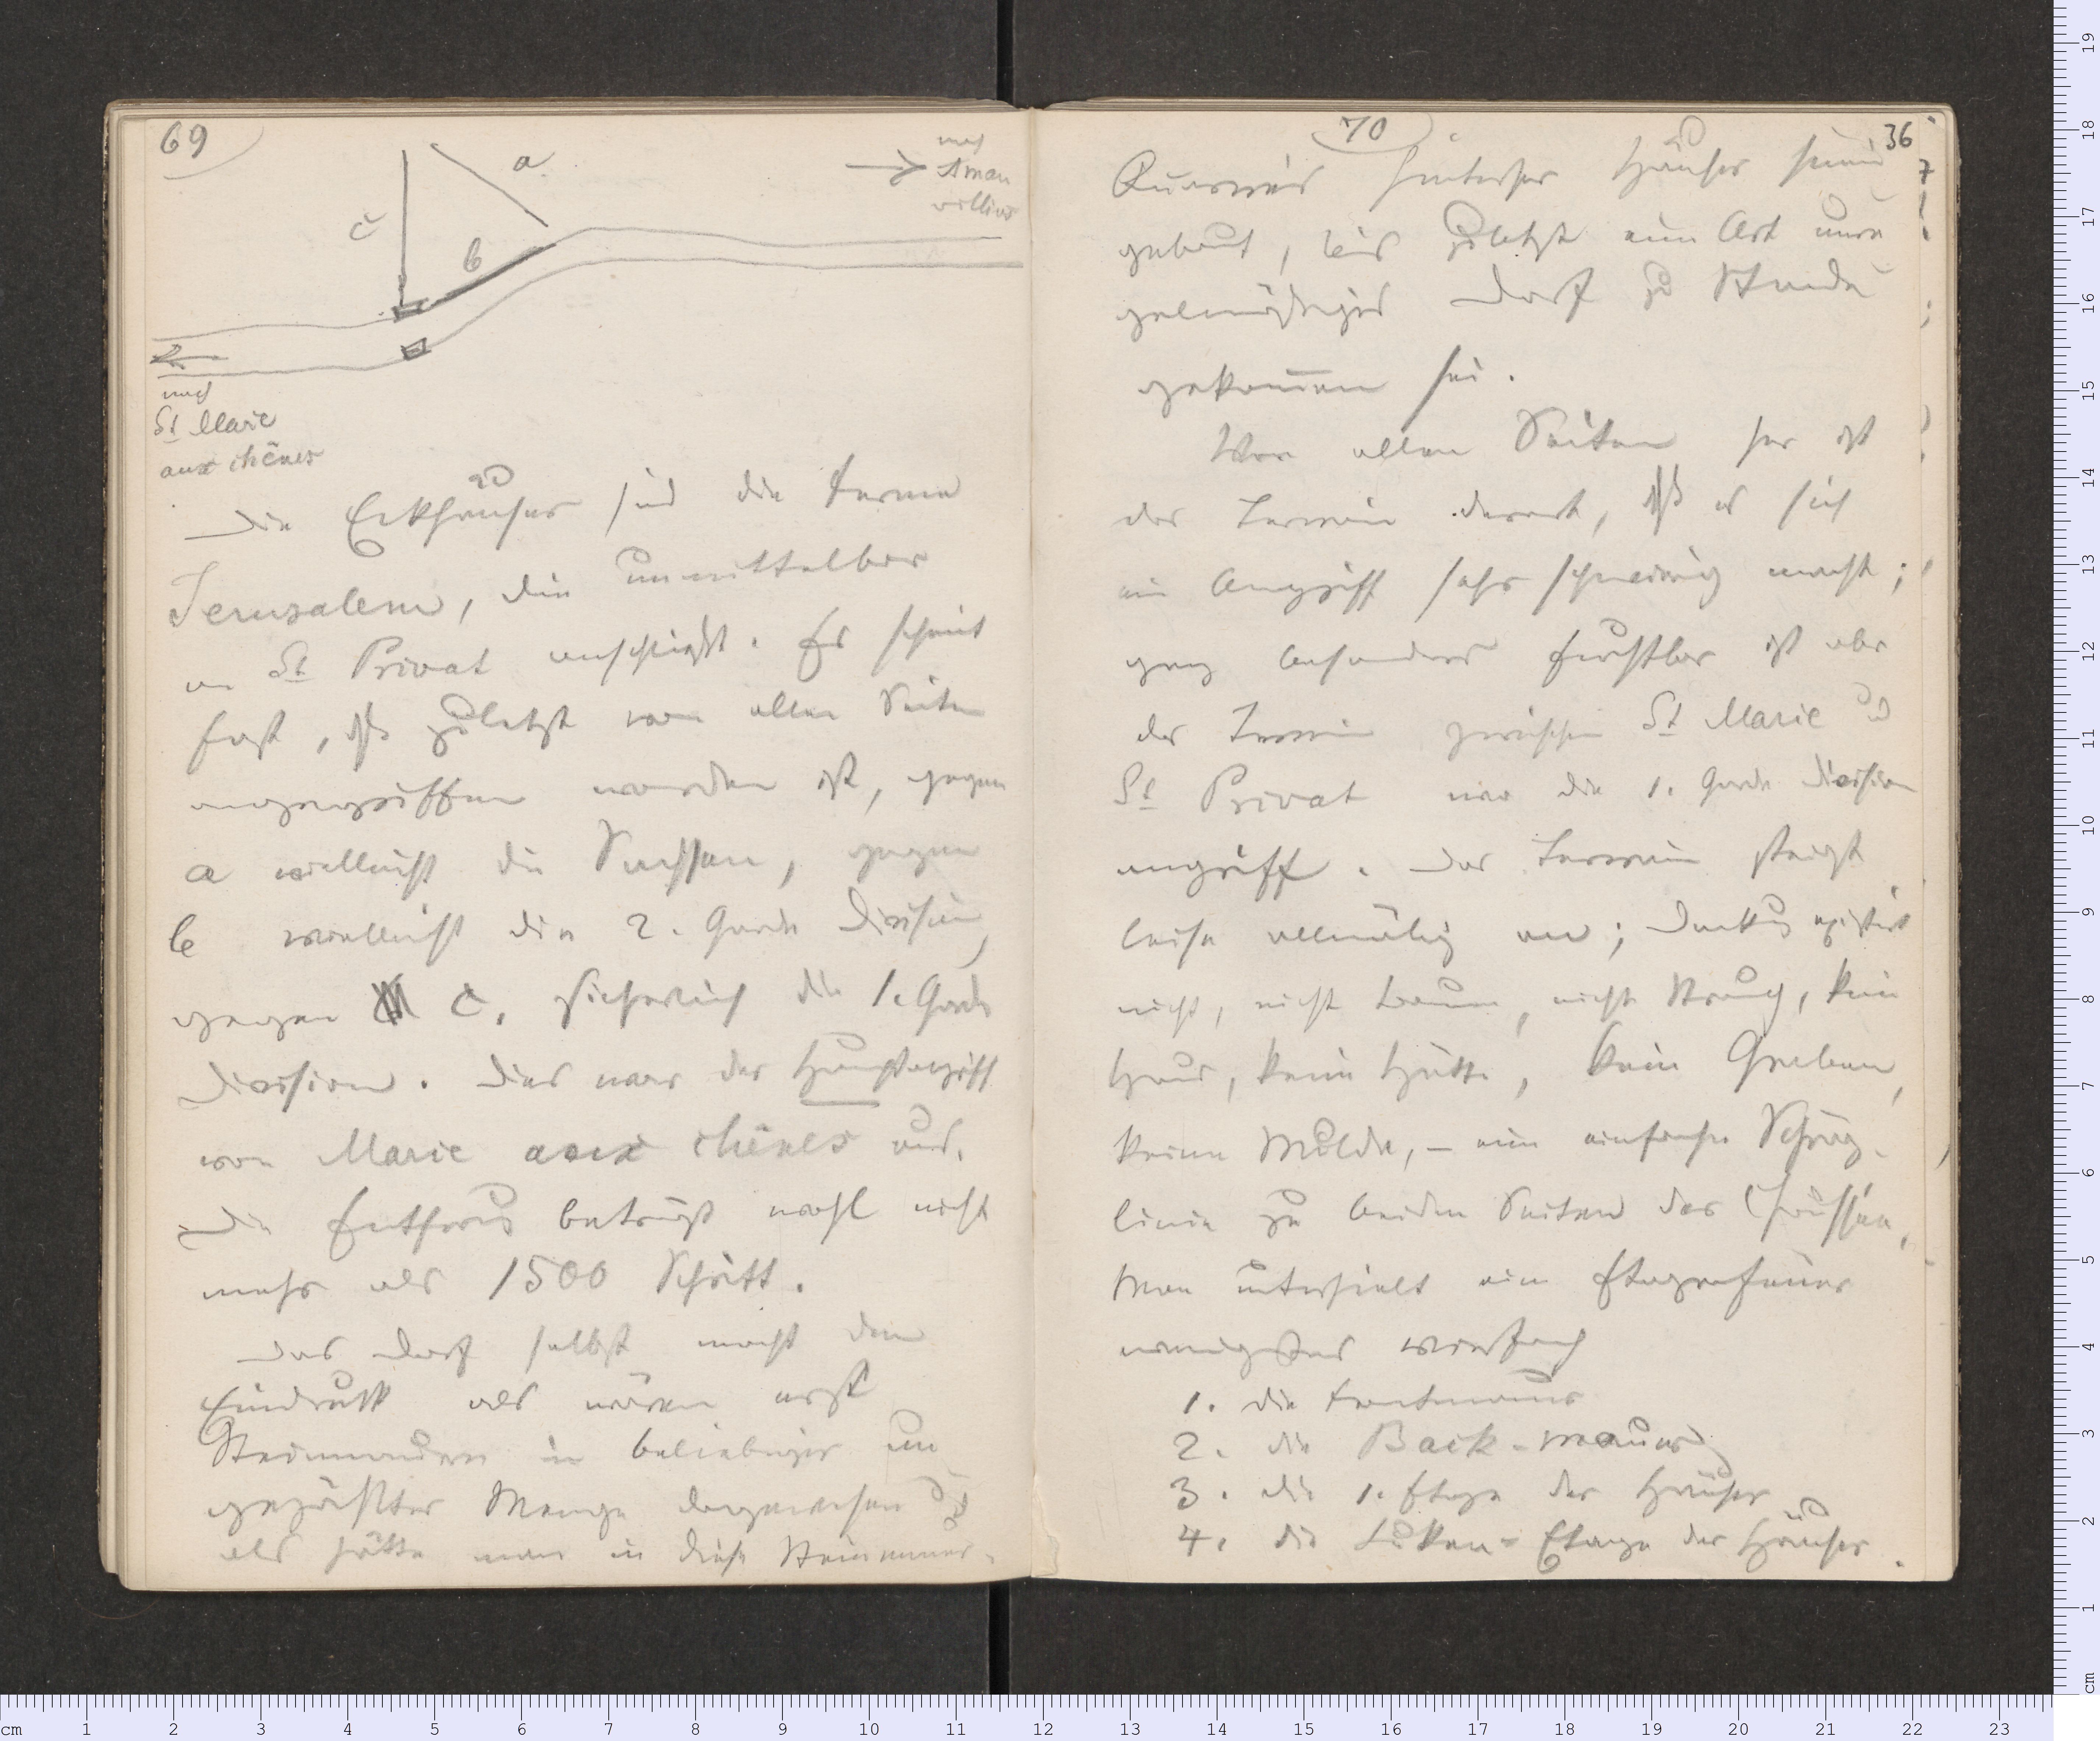 69
a.
nach
Aman
villers
c
b
nach
St Marie
aux chênes
Die Eckhäuser sind die Ferme
Jerusalem, die unmittelbar
an St Privat anschließt. Es scheint
fast, daß zuletzt von allen Seiten
angegriffen worden ist, gegen
a vielleicht die Sachsen, gegen
b vielleicht die 2. Garde Division,
gegen c. sicherlich die 1. Garde
Division. Dies war der Hauptangriff
von Marie aux chênes aus.
Die Entfernung beträgt wohl nicht
mehr als 1500 Schritt.
Das Dorf selbst macht den
Eindruck als wären erst
Steinmauern in beliebiger un
gezählter Menge dagewesen u
als hätte man in diese Steinmauer-
70
36
Quarrés hinterher Häuser hinein
gebaut, bis zuletzt eine Art unre
gelmäßiges Dorf zu Stande
gekommen sei.
Von allen Seiten her ist
das Terrain derart, daß es sich
ein Angriff sehr schwierig macht;
ganz besonders furchtbar ist aber
das Terrain zwischen St Marie und
St Privat wo die 1. Garde Division
angriff. Das Terrain steigt
leise allmälig an; Deckung existirt
nicht, nicht Baum, nicht Strauch, kein
Haus, keine Hütte, kein Graben,
keine Mulde, – eine einfache Schräg-
linie zu beiden Seiten der Chaussée,
Man unterhielt ein Etagenfeuer
wenigstens vierfach
1. die Frontmauer
2. die Back-mauer
3. die 1. Etage der Häuser
4. die Luken-Etage der Häuser.